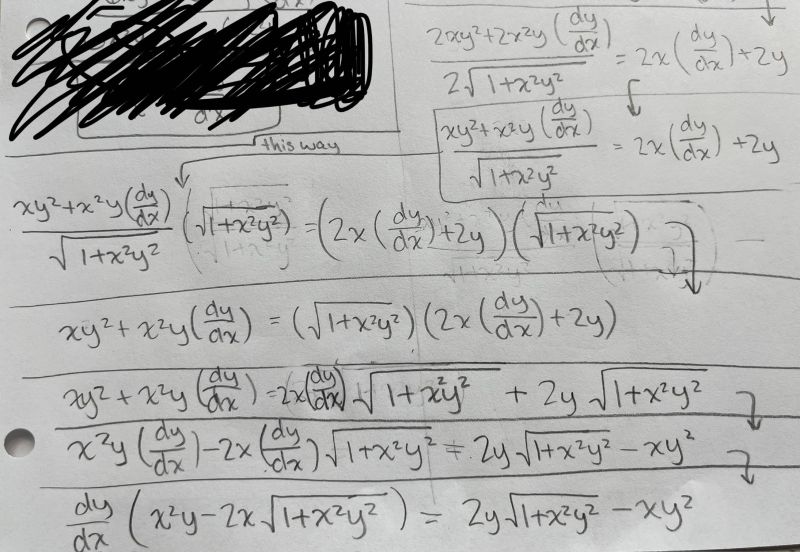 (2xy²+2x²y(dy/dx))/(2√(1+x²y²)) = 2x(dy/dx)+2y
(xy²+x²y(dy/dx))/√(1+x²y²) = 2x(dy/dx)+2y
this way
(xy²+x²y(dy/dx))/√(1+x²y²) (√(1+x²y²)) = (2x(dy/dx)+2y)(√(1+x²y²))
xy²+x²y(dy/dx) = (√(1+x²y²))(2x(dy/dx)+2y)
xy²+x²y(dy/dx) = 2x(dy/dx)√(1+x²y²) + 2y√(1+x²y²)
x²y(dy/dx)-2x(dy/dx)√(1+x²y²) = 2y√(1+x²y²) - xy²
dy/dx (x²y-2x√(1+x²y²)) = 2y√(1+x²y²) - xy²